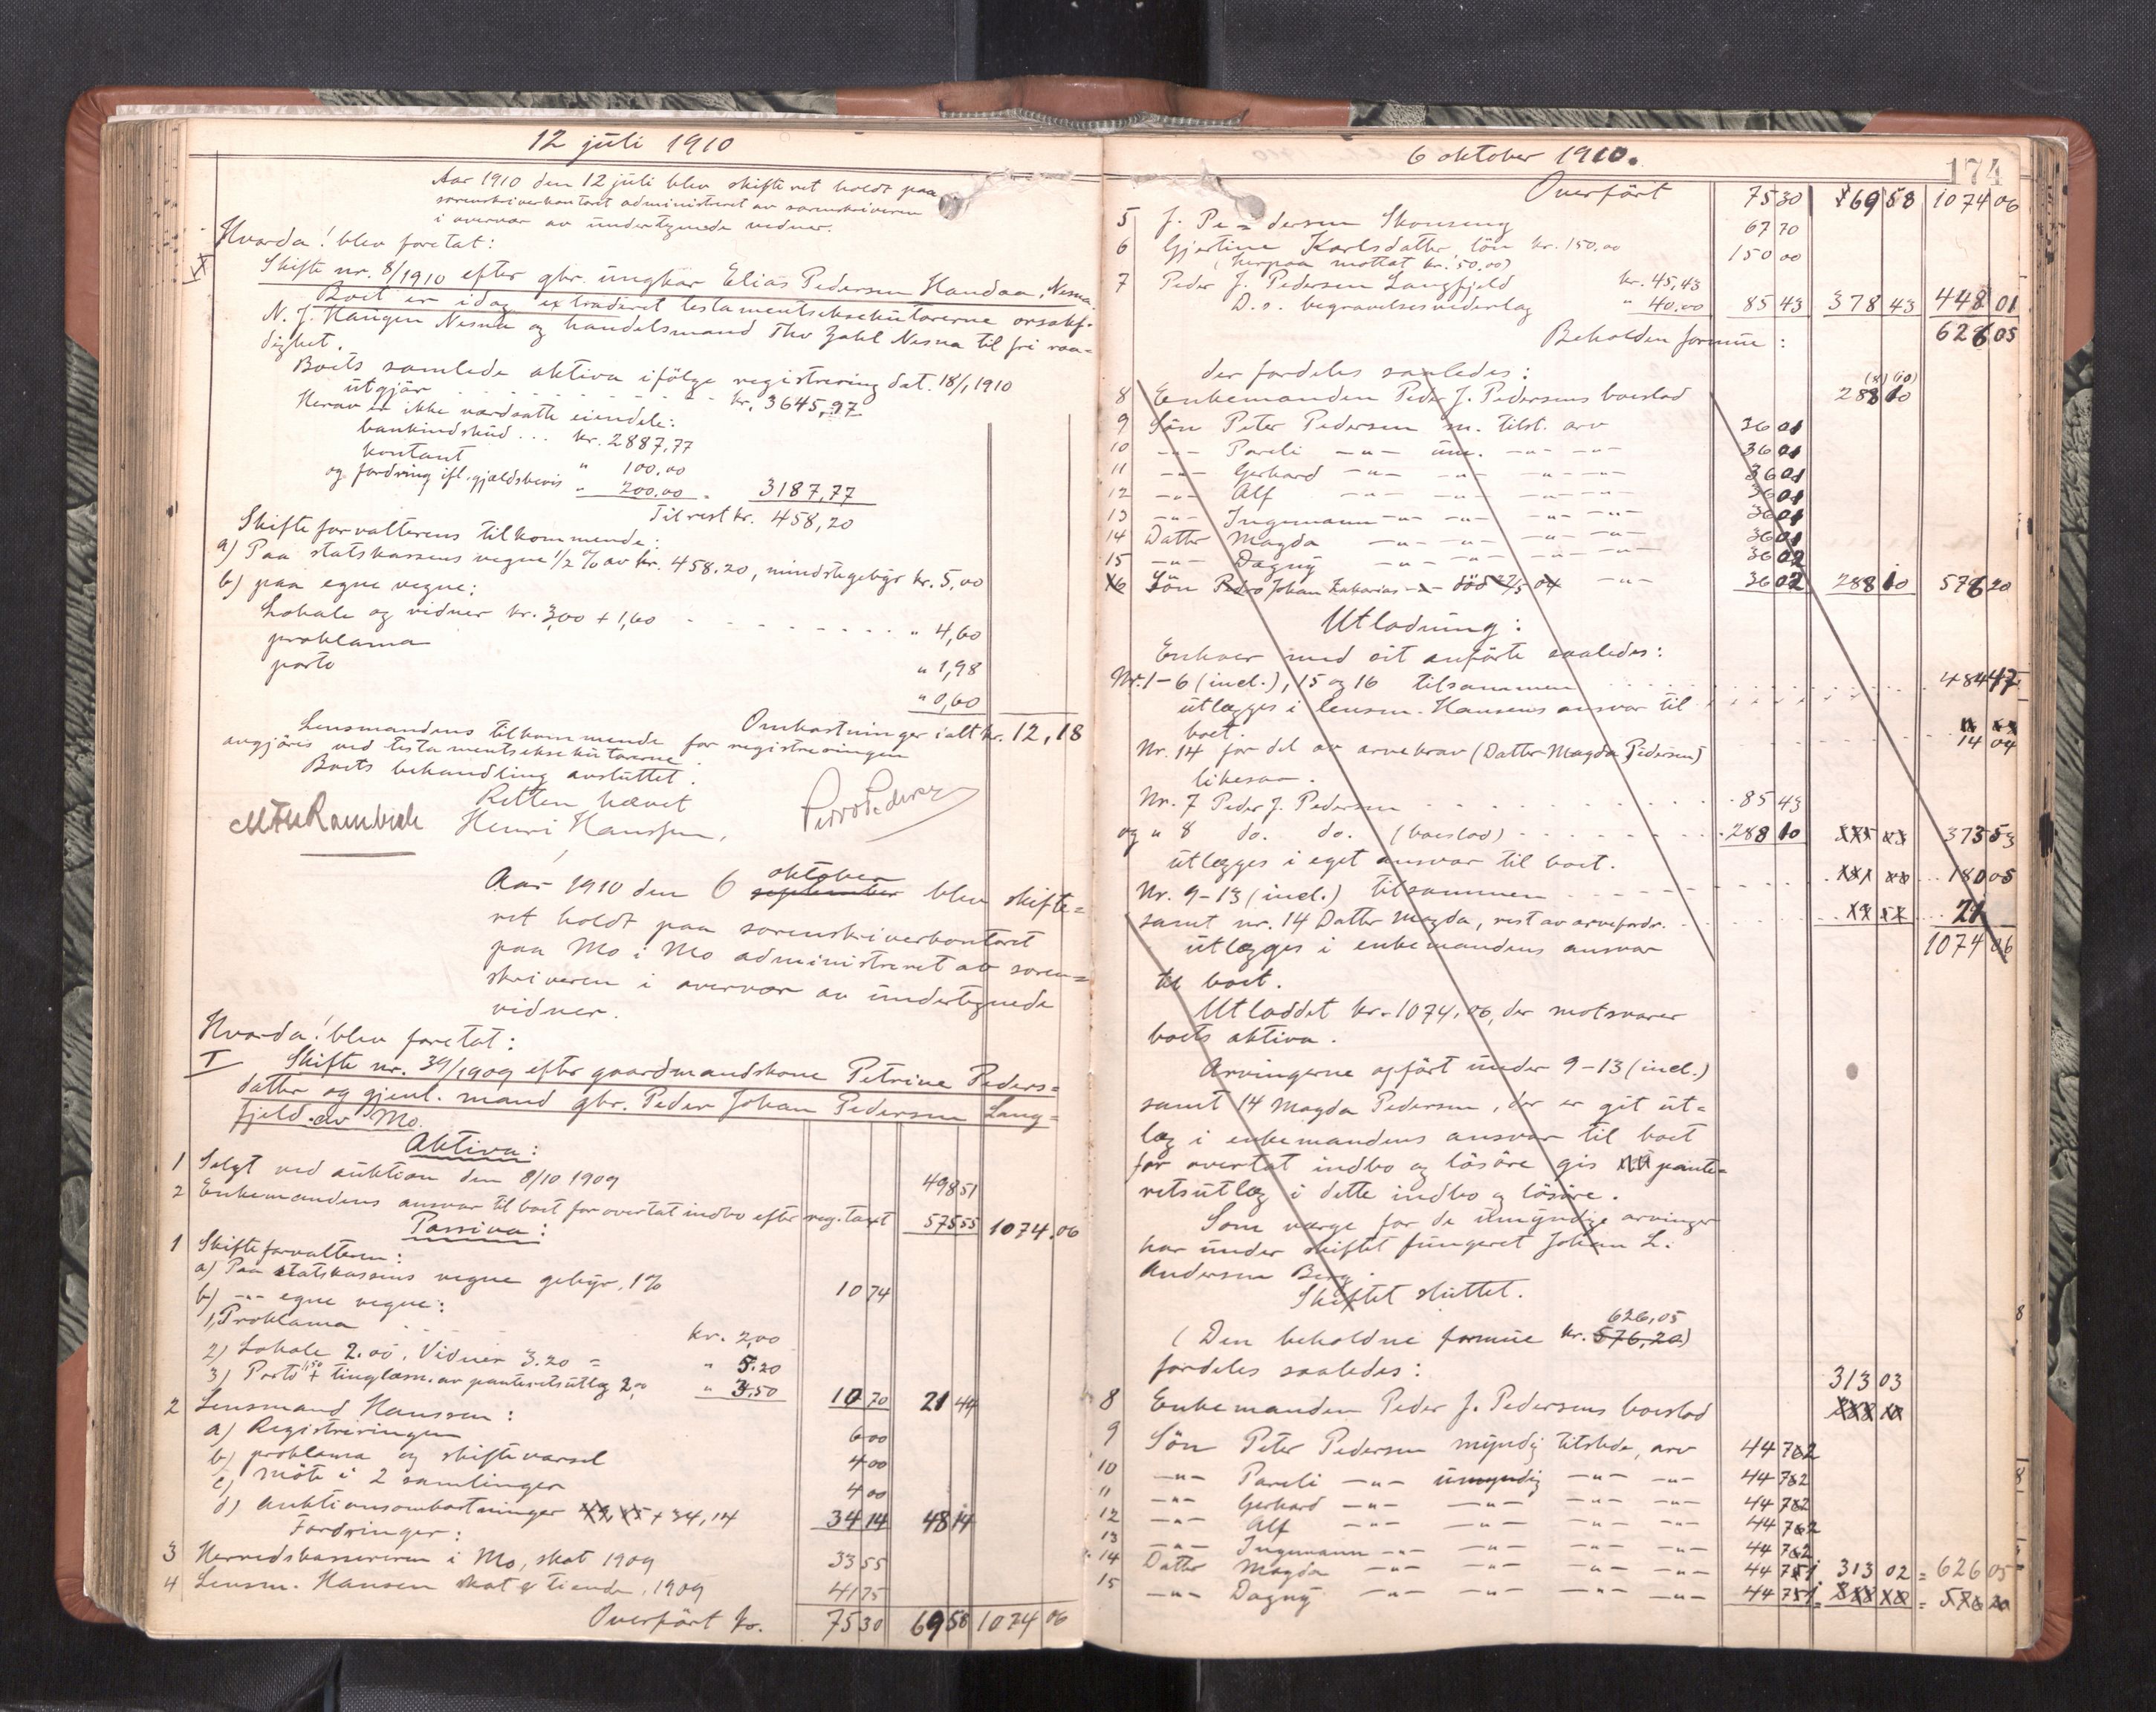 12 juli 1910
Aar 1910 den 12 juli blev skifteret holdt paa
sorenskriverkontoret administreret av sorenskriveren
i overvær av undertegnede vidner.
Hvorda! blev foretat:
Skifte nr. 8/1910 efter gbr. ungkar Elias Pedersen Handaa, Nesna.
Boet er idag extraderet testamentseksekutorerne
N. J. Haugen Nesna og handelsmand Thv Zahl Nesna til fri raa=
dighet.
Boets samlede aktiva ifölge registrering dat. 18/1 1910
utgjör kr. 3645,97
Herav er ikke værdsatte eiendele:
bankindskud ... kr. 2887,77
kontant " 100,00
og fordring ifl. gjældsbevis " 200,00 " 3187,77
Til rest kr. 458,20
Skifteforvalterens tilkommende:
a) Paa statskassens vegne 1/2 % av kr. 458.20, mindstegebyr kr. 5,00
b) paa egne vegne:
Lokale og vidner kr. 3,00 + 1,60 " 4,60
proklama " 1,98
porto " 0,60
Omkostninger ialt kr. 12,18
Lensmandens tilkommende for registreringen
avgjöres ved testamentseksekutorerne.
Boets behandling avsluttet.
Retten hævet
Henri Hanssen,
Aar 1910 den 6 oktober september blev skifte=
ret holdt paa sorenskriverkontoret
paa Mo i Mo administreret av soren=
skriveren i overvær av undertegnede
vidner.
Hvorda! blev foretat:
I Skifte nr. 39/1909 efter gaardmandskone Petrine Peders=
datter og gjenl. mand gbr. Peder Johan Pedersen Lang=
fjeld av Mo.
Aktiva:
1 Solgt ved auktion den 8/10 1909 498 51
2 Enkemandens ansvar til boet for overtat indbo efter reg. taxt 575 55 1074.06
Passiva:
1 Skifteforvalteren:
a) Paa statskassens vegne gebyr 1% 10 74
b) -"- egne vegne:
1, Proklama kr. 2,00
2) Lokale 2.00, Vidner 3.20 = " 5.20
3) Porto 1,50 + tinglæsn. av panteretsutlæg 2,00 " 3.50 10 70 21 44
2 Lensmand Hanssen:
a) Registreringen 6 00
b) proklama og skiftevarsel 4 00
c) möte i 2 samlinger 4 00
d) auktionsomkostninger + 34,14 34 14 48 14
Fordringer:
3 Herredskassereren i Mo, skat 1909 33 55
4 Lensm. Hansen skat & tiende, 1909 41 75
Overfört kr. 75 30 69 58 1074 06
6 oktober 1910.
174
Overfört 75 30 69 58 1074 06
5 J. Pe=dersen Skonseng 67 70
6 Gjertine Karlsdatter, lön kr. 150,00 150 00
(herpaa mottat kr. 50,00)
7 Peder J. Pedersen Langfjeld kr. 45,43
D.s. begravelsesvederlag " 40.00 85 43 378 43 448 01
Beholden formue: 626 05
der fordeles saaledes:
8 Enkemanden Peder J. Pedersens boeslod 288 10
9 Sön Peter Pedersen m. tilst. arv 36 01
10 -"- Pareli -"- um. -"- -"- 36 01
11 -"- Gerhard -"- -"- -"- -"- 36 01
12 -"- Alf -"- -"- -"- -"- 36 01
13 -"- Ingemann -"- -"- -"- -"- 36 01
14 Datter Magda -"- -"- -"- -"- 36 01
15 -"- Dagny -"- -"- -"- -"- 36 02
16 Sön Johan Zakarias död -"- 36 02 288 10 576 20
Utlodning:
Enhver med sit anförte saaledes:
Nr. 1-6 (incl.), 15 og 16 tilsammen 484 47
utlægges i lensm. Hansens ansvar til
boet.
Nr. 14 for del av arvekrav (Datter Magda Pedersen) 14 04
likesaa.
Nr. 7 Peder J. Pedersen 85 43
og " 8 do. do. (boeslod) 288 10 373 53
utlægges i eget ansvar til boet.
Nr. 9-13 (incl.) tilsammen 180 05
samt nr. 14 Datter Magda, rest av arvefordr. 21
utlægges i enkemandens ansvar 1074 06
til boet.
Utloddet kr. 1074,06, der motsvarer
boets aktiva.
Arvingerne opfört under 9-13 (incl.)
samt 14 Magda Pedersen, der er git ut=
læg i enkemandens ansvar til boet
for overtat indbo og lösöre gis pante=
retsutlæg i dette indbo og lösöre.
Som værge for de umyndige arvinger
har under skiftet fungeret Johan L.
Andersen Berg.
Skiftet sluttet.
626,05
(Den beholdne formue kr. 576,20)
fordeles saaledes:
313 03
8 Enkemanden Peder J. Pedersens boeslod
9 Sön Peter Pedersen myndig tilstede, arv 44 72
10 -"- Pareli -"- umyndig -"- -"- 44 72
11 -"- Gerhard -"- -"- -"- -"- 44 72
12 -"- Alf -"- -"- -"- -"- 44 72
13 -"- Ingemann -"- -"- -"- -"- 44 72
14 Datter Magda -"- -"- -"- -"- 44 71 313 02 = 626 05
15 -"- Dagny -"- -"- -"- -"- 44 71